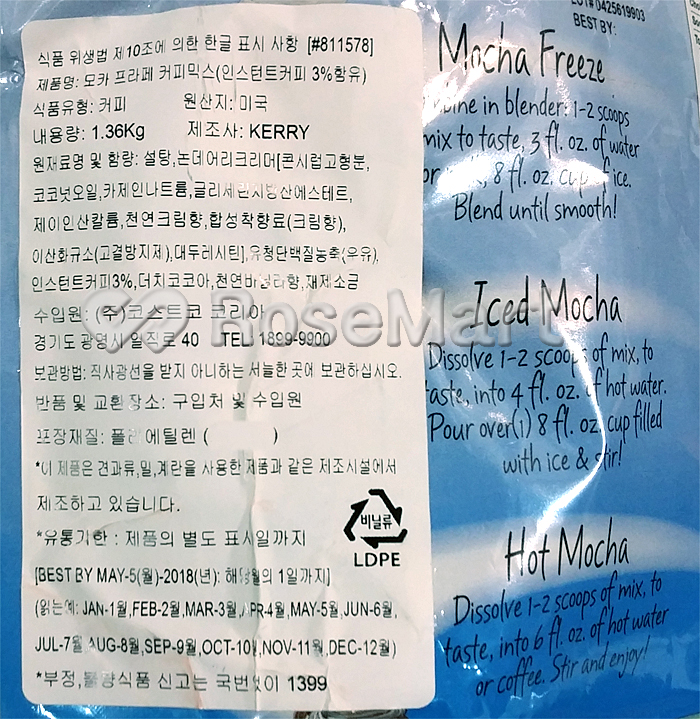 식품 위생법 제10조에 의한 한글 표시 사항 [#811578]
제품명: 모카 프라페 커피믹스(인스턴트커피 3%함유)
식품유형: 커피 원산지: 미국
내용량: 1.36Kg 제조사: KERRY
원재료명 및 함량: 설탕,논데어리크리머[콘시럽고형분,
코코넛오일,카제인나트륨,글리세린지방산에스테르,
제이인산칼륨,천연크림향,합성착향료(크림향),
이산화규소(고결방지제),대두레시틴],유청단백질농축(우유),
인스턴트커피3%,더치코코아,천연바닐라향,재제소금
수입원: (주)코스트코 코리아
경기도 광명시 일직로 40 TEL: 1899-9900
보관방법: 직사광선을 받지 아니하는 서늘한 곳에 보관하십시오.
반품 및 교환장소: 구입처 및 수입원
포장재질: 폴리에틸렌 ( )
*이 제품은 견과류,밀,계란을 사용한 제품과 같은 제조시설에서
제조하고 있습니다.
*유통기한 : 제품의 별도 표시일까지
[BEST BY MAY-5(월)-2018(년): 해당월의 1일까지]
(읽는예: JAN-1월,FEB-2월,MAR-3월,APR-4월,MAY-5월,JUN-6월,
JUL-7월,AUG-8월,SEP-9월,OCT-10월,NOV-11월,DEC-12월)
*부정,불량식품 신고는 국번없이 1399
비닐류
LDPE
RoseMart
LOT# 0425619903
BEST BY:
Mocha Freeze
in blender: 1-2 scoops
mix to taste, 3 fl. oz. of water
or 8 fl. oz. cup of ice.
Blend until smooth!
Iced Mocha
Dissolve 1-2 scoops of mix, to
taste, into 4 fl. oz. of hot water.
Pour over(1) 8 fl. oz. cup filled
with ice & stir!
Hot Mocha
Dissolve 1-2 scoops of mix, to
taste, into 6 fl. oz. of hot water
or coffee. Stir and enjoy!